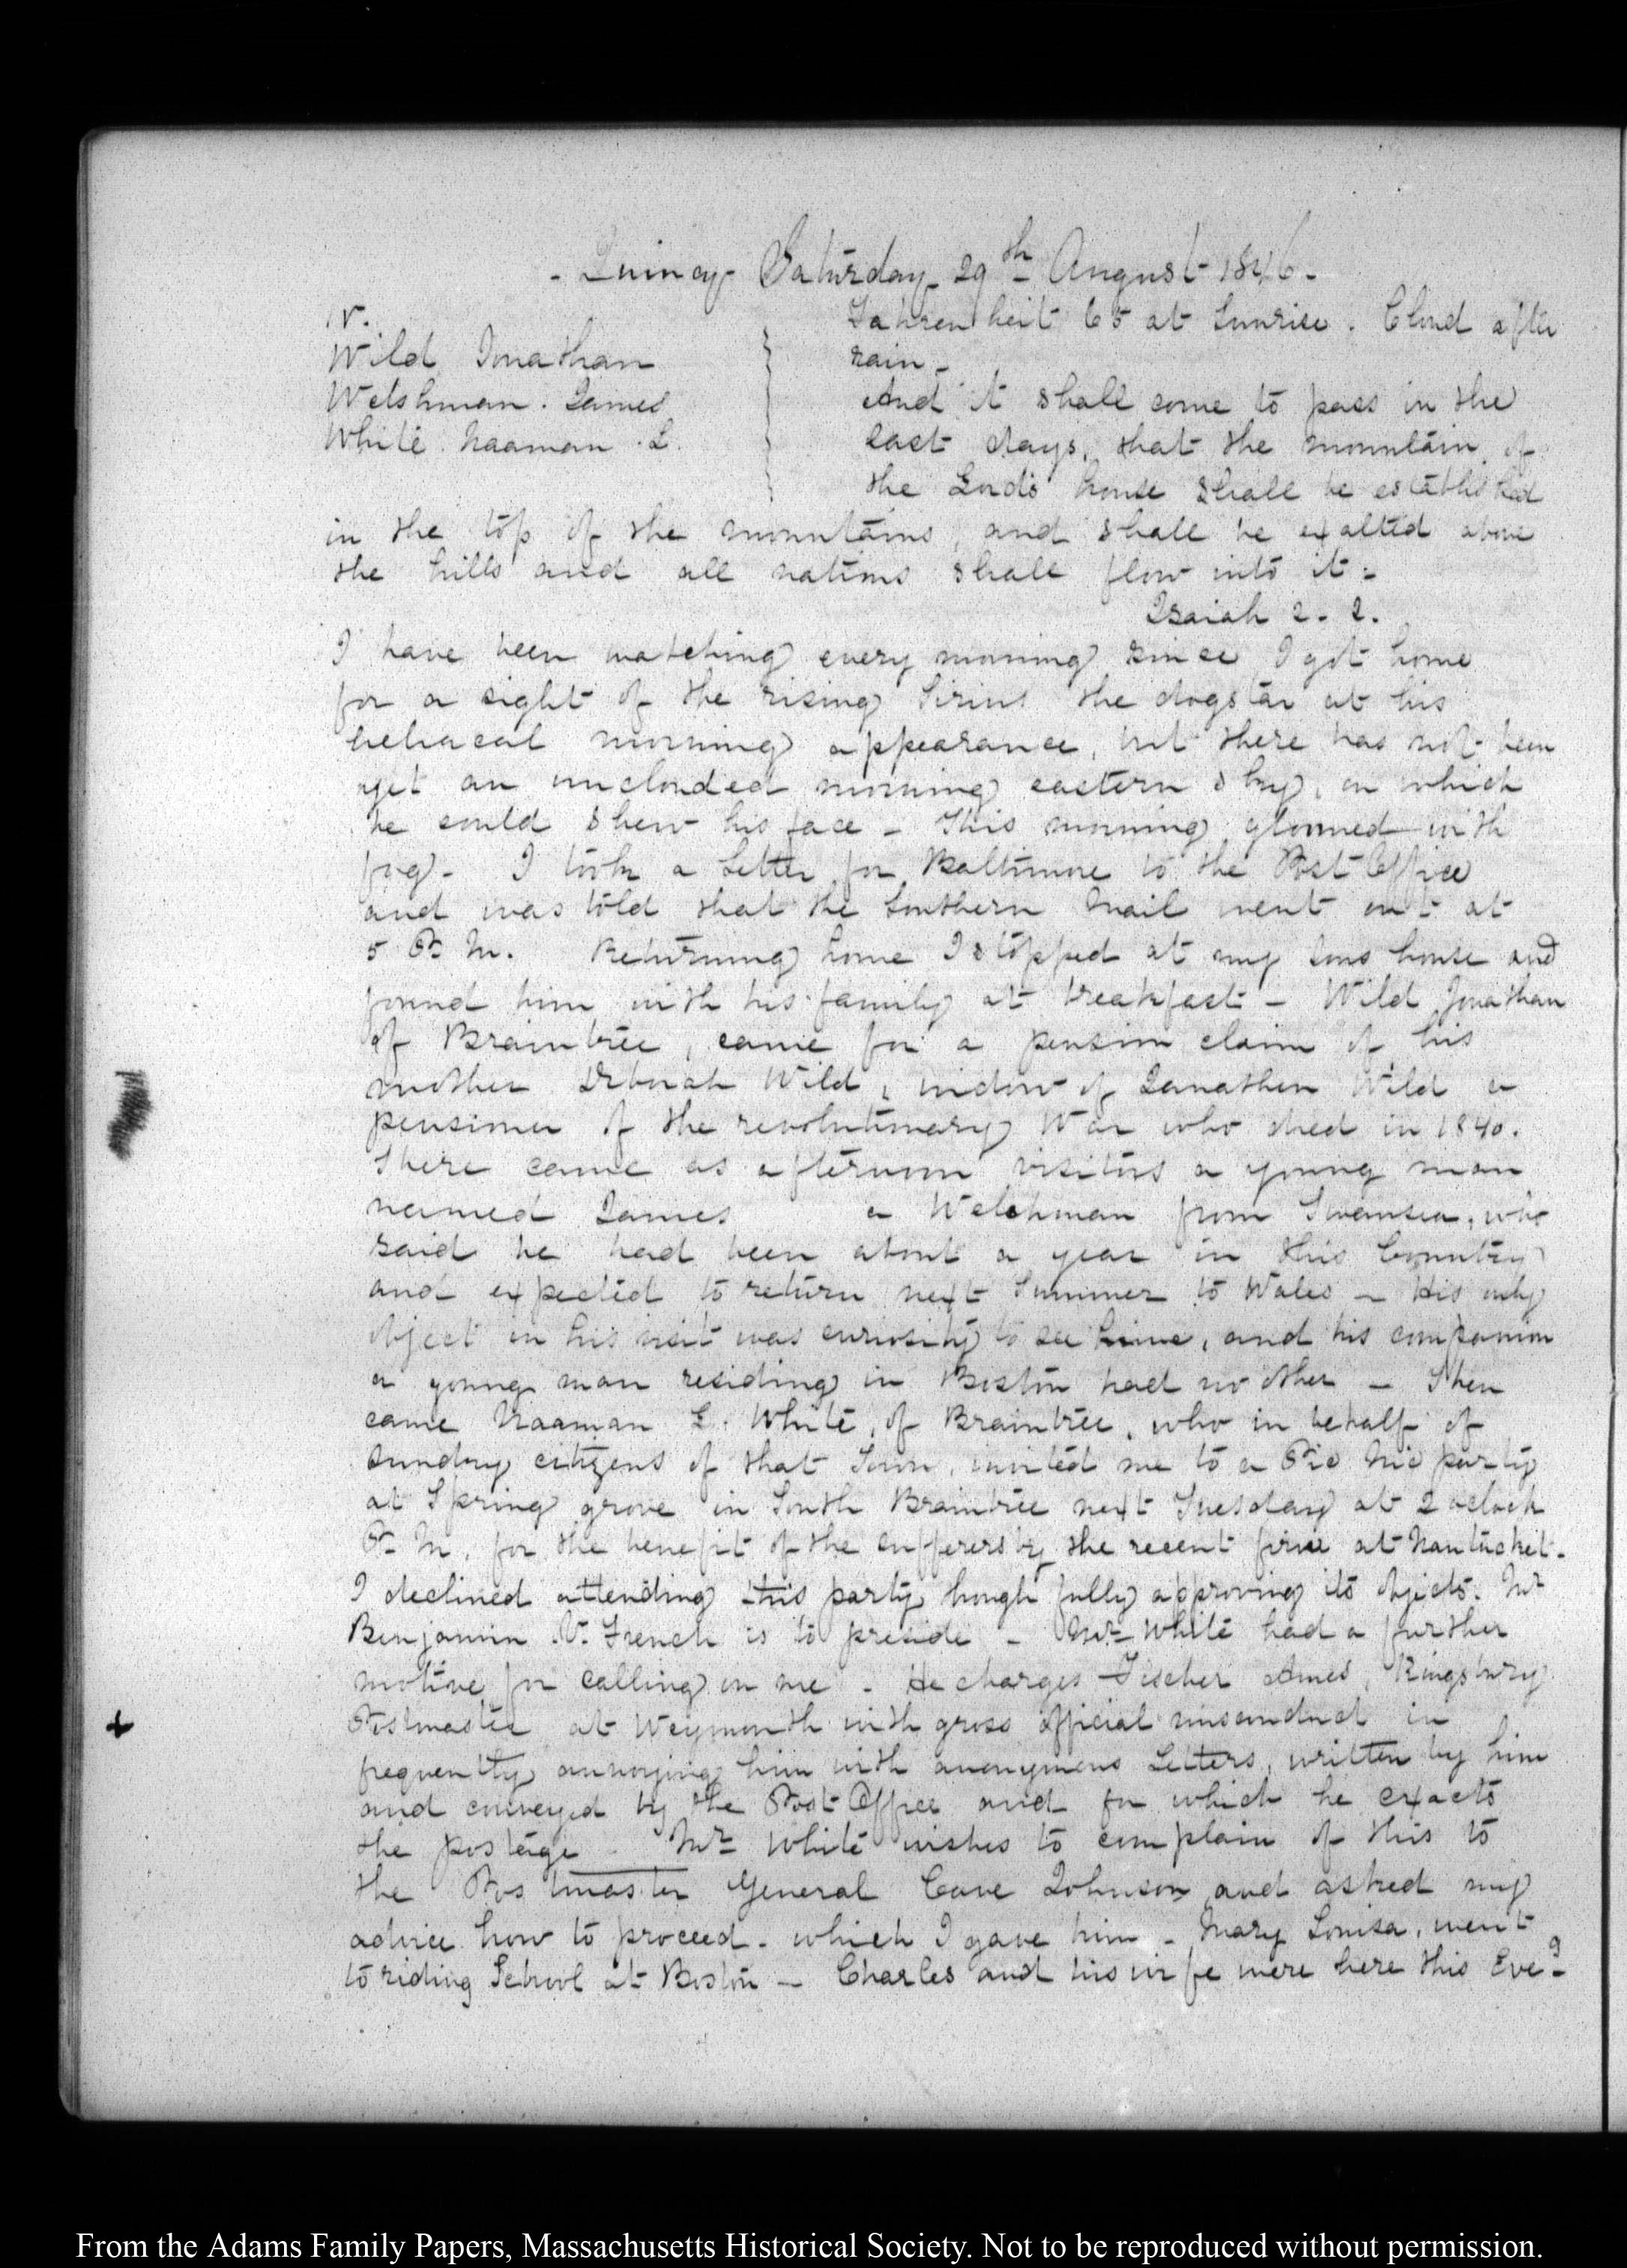 - Quincy Saturday 29th August 1846.
IV.
Fahrenheit 65 at Sunrise. Cloud after
Wild Jonathan
rain -
Welshman. James
And it shall come to pass in the
White. Naaman. L.
last days, that the mountain of
the Lord's house shall be established
in the top of the mountains, and shall be exalted above
the hills and all nations shall flow into it -
Isaiah 2. 2.
I have been watching every morning since I got home
for a sight of the rising Sirius the dogstar at his
heliacal morning appearance, but there has not been
yet an unclouded morning eastern sky, on which
he could shew his face - This morning gloomed with
fog - I took a Letter for Baltimore to the Post Office
and was told that the Southern Mail went out at
5 P. M. Returning home I stopped at my Sons house and
found him with his family at breakfast - Wild Jonathan
of Braintree, came for a pension claim of his
mother Deborah Wild, widow of Jonathan Wild a
pensioner of the revolutionary War who died in 1840.
There came as afternoon visitors a young man
named James a Welchman from Swansea, who
said he had been about a year in this Country
and expected to return next Summer to Wales - His only
object in his visit was curiosity to see me, and his companion
a young man residing in Boston had no other - Then
came Naaman L. White, of Braintree, who in behalf of
sundry citizens of that Town, invited me to a Pic Nic party
at Spring grove in South Braintree next Tuesday at 2 oclock
P. M. for the benefit of the sufferers by the recent fire at Nantucket.
I declined attending this party though fully approving its objects. Mr
Benjamin V. French is to preside - Mr White had a further
motive for calling on me - He charges Fischer Ames, Kingsbury
Postmaster at Weymouth with gross official misconduct in
frequently annoying him with anonymous Letters, written by him
and conveyed by the Post Office and for which he exacts
the postage. Mr White wishes to complain of this to
the Postmaster General Cave Johnson and asked my
advice how to proceed - which I gave him - Mary Louisa, went
to riding School at Boston - Charles and his wife were here this Eveg
From the Adams Family Papers, Massachusetts Historical Society. Not to be reproduced without permission.